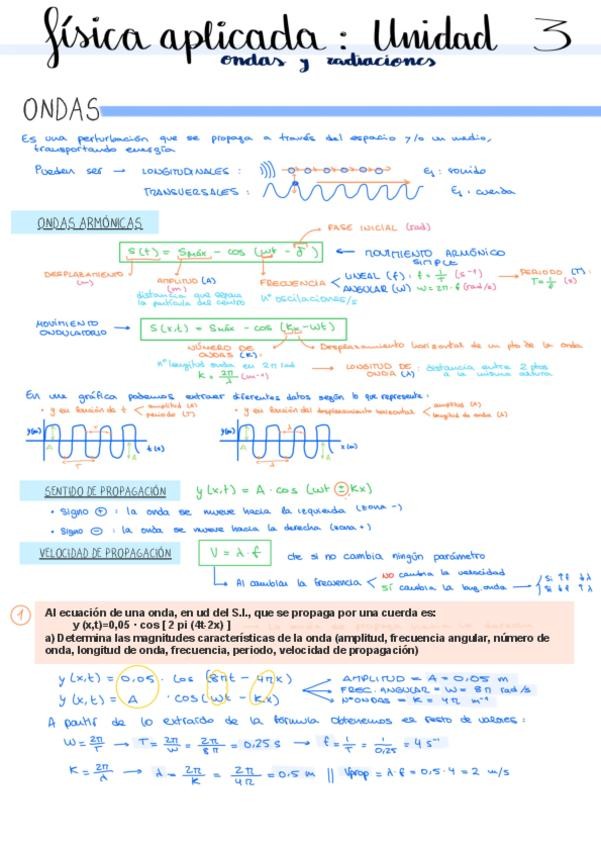 física aplicada: Unidad 3
ondas y radiaciones
ONDAS
Es una perturbación que se propaga a través del espacio y/o un medio,
transportando energía
Pueden ser → LONGITUDINALES: Ej: sonido
TRANSVERSALES: Ej: cuerda
ONDAS ARMÓNICAS
FASE INICIAL (rad)
S(t) = Smáx - cos (wt - δ) ← MOVIMIENTO ARMÓNICO
SIMPLE
DESPLAZAMIENTO
(m)
AMPLITUD (A)
(m)
distancia que separa
la partícula del centro
FRECUENCIA
nº oscilaciones/s
LINEAL (f): f = 1/T (s⁻¹) → PERIODO (T):
T = 1/f (s)
ANGULAR (W) w = 2π·f (rad/s)
MOVIMIENTO
ONDULATORIO → S(x,t) = Smáx - cos (Kx - wt)
NÚMERO DE
ONDAS (K):
nº longitud onda en 2π rad
K = 2π/λ (m⁻¹)
Desplazamiento horizontal de un pto de la onda
LONGITUD DE
ONDA (λ)
: distancia entre 2 ptos
a la misma altura
En una gráfica podemos extraer diferentes datos según lo que represente:
• y en función de t < amplitud (A)
periodo (T)
• y en función del desplazamiento horizontal < amplitud (A)
longitud de onda (λ)
y(m) A T t(s)
y(m) λ A x(m)
SENTIDO DE PROPAGACIÓN y(x,t) = A · cos (wt ± Kx)
• Signo + : la onda se mueve hacia la izquierda (zona -)
• Signo - : la onda se mueve hacia la derecha (zona +)
VELOCIDAD DE PROPAGACIÓN V = λ · f cte si no cambia ningún parámetro
Al cambiar la frecuencia < NO cambia la velocidad
SÍ cambia la long onda → Si ↑f ↓λ
Si ↓f ↑λ
1
Al ecuación de una onda, en ud del S.I., que se propaga por una cuerda es:
y (x,t)=0,05 · cos [ 2 pi (4t-2x) ]
a) Determina las magnitudes características de la onda (amplitud, frecuencia angular, número de
onda, longitud de onda, frecuencia, periodo, velocidad de propagación)
y(x,t) = 0,05 · cos (8πt - 4πx)
y(x,t) = A · cos (wt - Kx)
AMPLITUD = A = 0,05 m
FREC. ANGULAR = W = 8π rad/s
NºONDAS = K = 4π m⁻¹
A partir de lo extraído de la fórmula obtenemos el resto de valores:
W = 2π/T → T = 2π/W = 2π/8π = 0,25 s → f = 1/T = 1/0,25 = 4 s⁻¹
K = 2π/λ → λ = 2π/K = 2π/4π = 0,5 m || Vprop = λ·f = 0,5·4 = 2 m/s